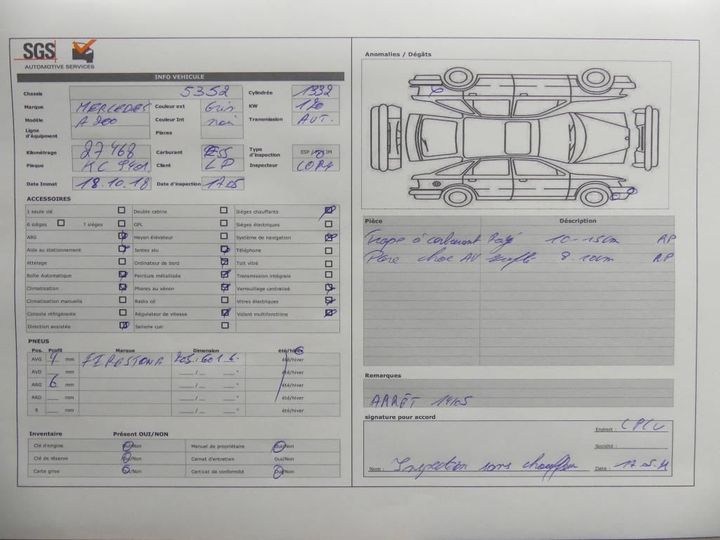 SGS
AUTOMOTIVE SERVICES
INFO VEHICULE
Chassis 5352 Cylindrée 1332
Marque MERCEDES Couleur ext Gris KW 120
Modèle A 200 Couleur Int noir Transmission AUT.
Ligne d'équipement Places
Kilométrage 27468 Carburant ESS Type d'inspection
Plaque Client LP Inspecteur
Date Immat 18.10.18 Date d'inspection 17.05
ACCESSOIRES
1 seule clé Double cabine Sièges chauffants
6 sièges 7 sièges GPL Sièges électriques
ABS Hayon élévateur Système de navigation
Aide au stationnement Jantes alu Téléphone
Attelage Ordinateur de bord Toit vitré
Boîte Automatique Peinture métallisée Transmission intégrale
Climatisation Phares au xénon Verrouillage centralisé
Climatisation manuelle Radio cd Vitres électriques
Console réfrigérante Régulateur de vitesse Volant multifonctions
Direction assistée Sellerie cuir
PNEUS
Pos. Profil Marque Dimension été/hiver
AVG 7 mm été/hiver
AVD mm été/hiver
ARG 6 mm été/hiver
ARD mm été/hiver
R mm été/hiver
Inventaire Présent OUI/NON
Clé d'origine Oui/Non Manuel de propriétaire Oui/Non
Clé de réserve Oui/Non Carnet d'entretien Oui/Non
Carte grise Oui/Non Certificat de conformité Oui/Non
Anomalies / Dégâts
Pièce Déscription
Trape à carburant Rayé 10-15cm RP
Pare choc AV 8-10cm RP
Remarques
ARRÊT 14/05
signature pour accord
Endroit :
Société :
Nom : Inspection sans chauffeur Date :